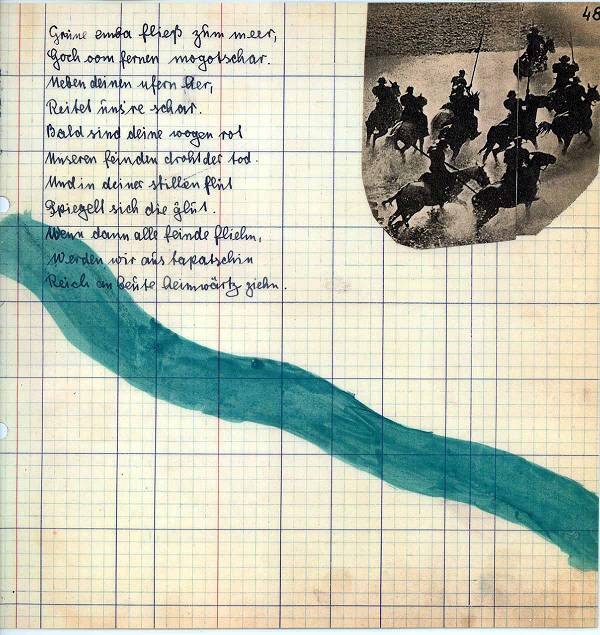 48
Grüne emba fließ zum meer,
Hoch vom fernen mogotschar.
Neben deinen ufern her,
Reitet uns're schar.
Bald sind deine wogen rot
Unseren feinden droht der tod.
Und in deiner stillen flut
Spiegelt sich die glut.
Wenn dann alle feinde fliehn,
Werden wir aus tapatschin
Reich an beute heimwärtz ziehn.